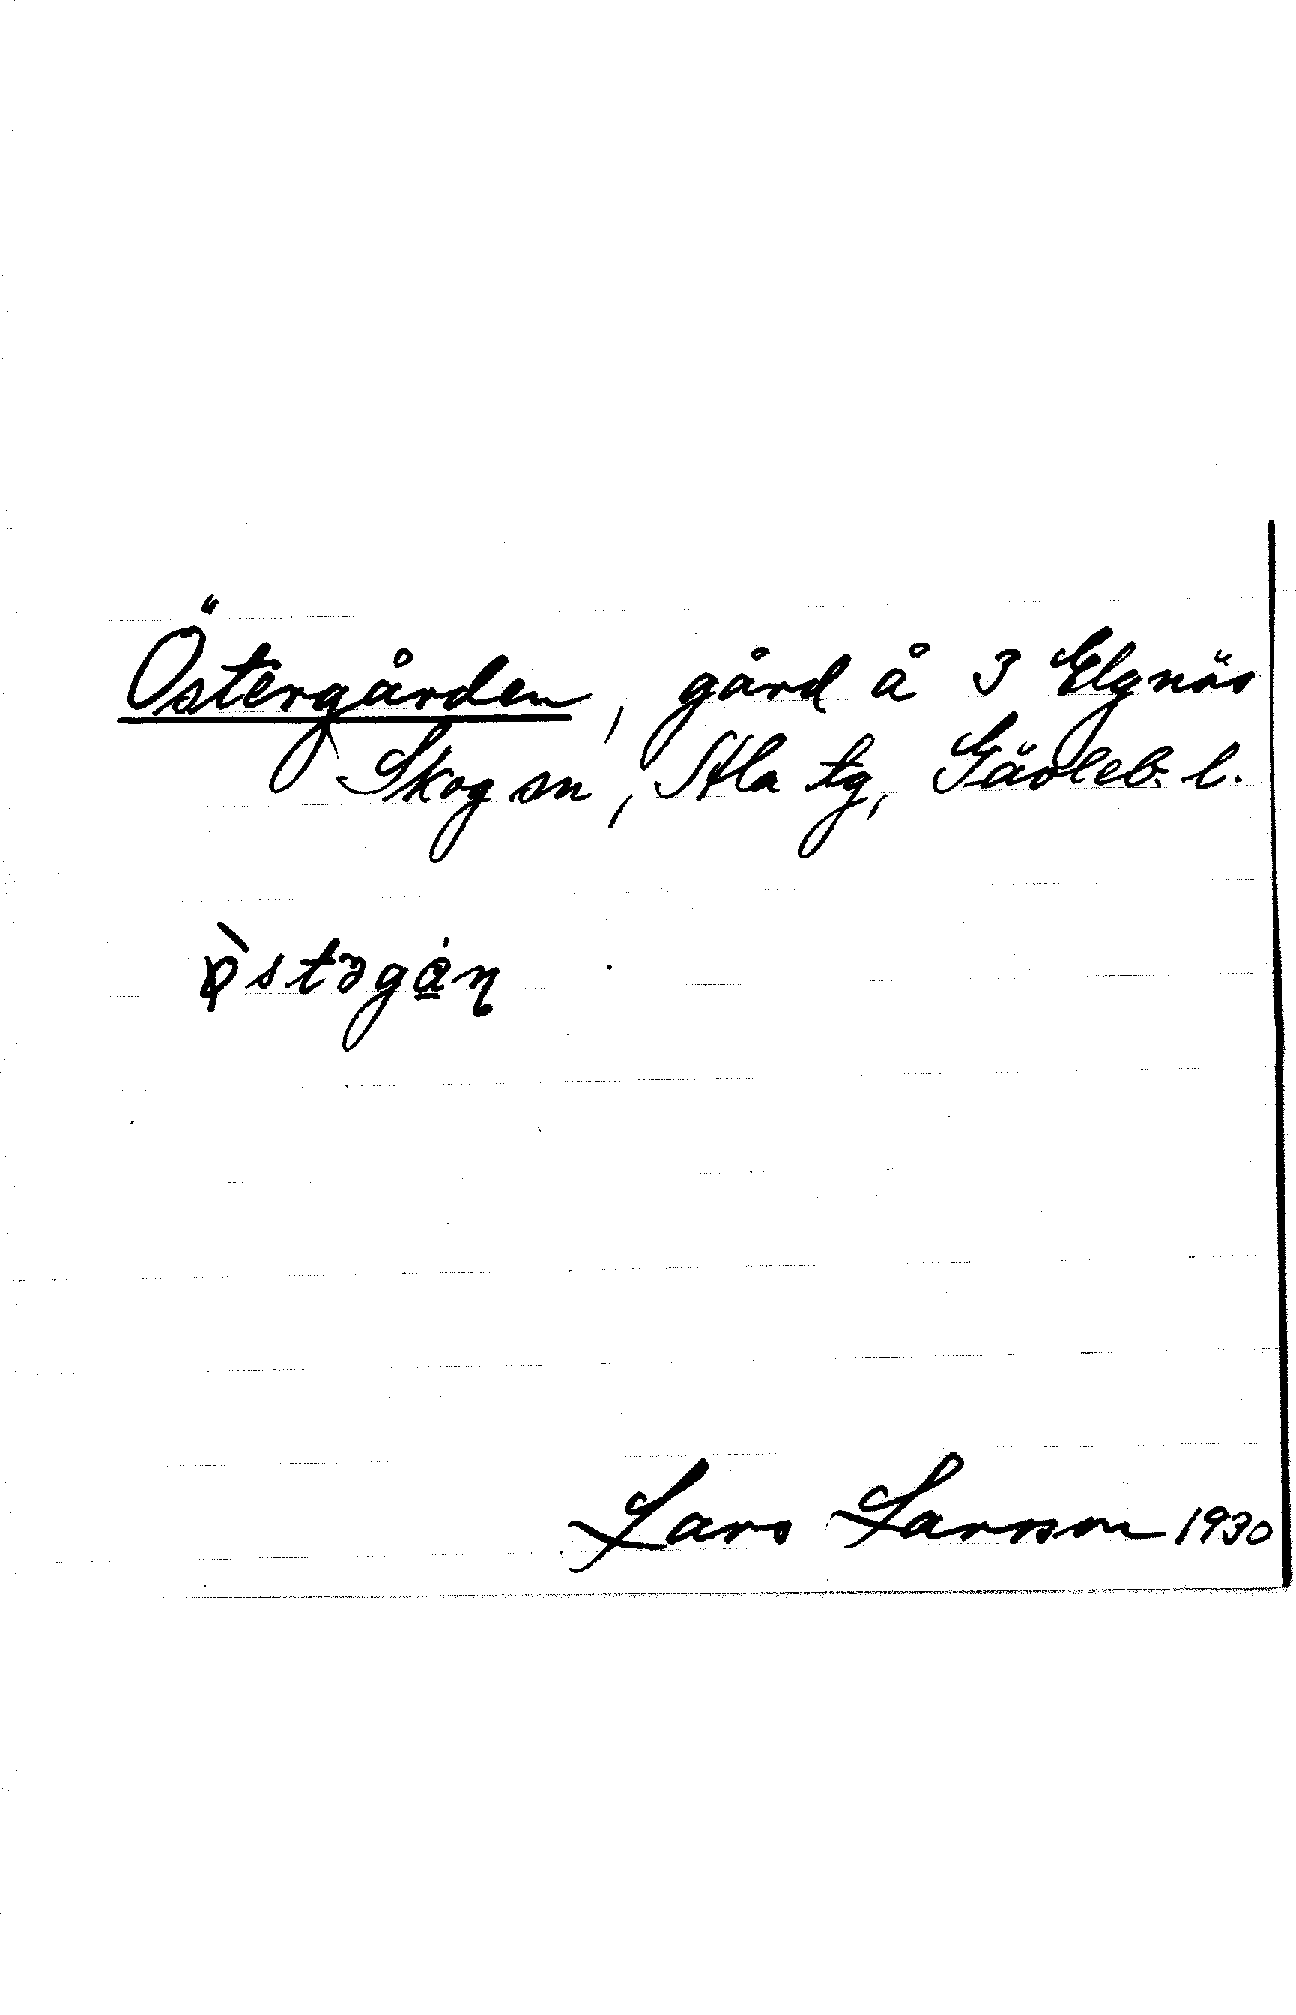 Östergården, gård å 3 Elgnäs
Skog sn, Ala tg, Gävleb. l.
ø̀stəga̲n
Lars Larsson 1930